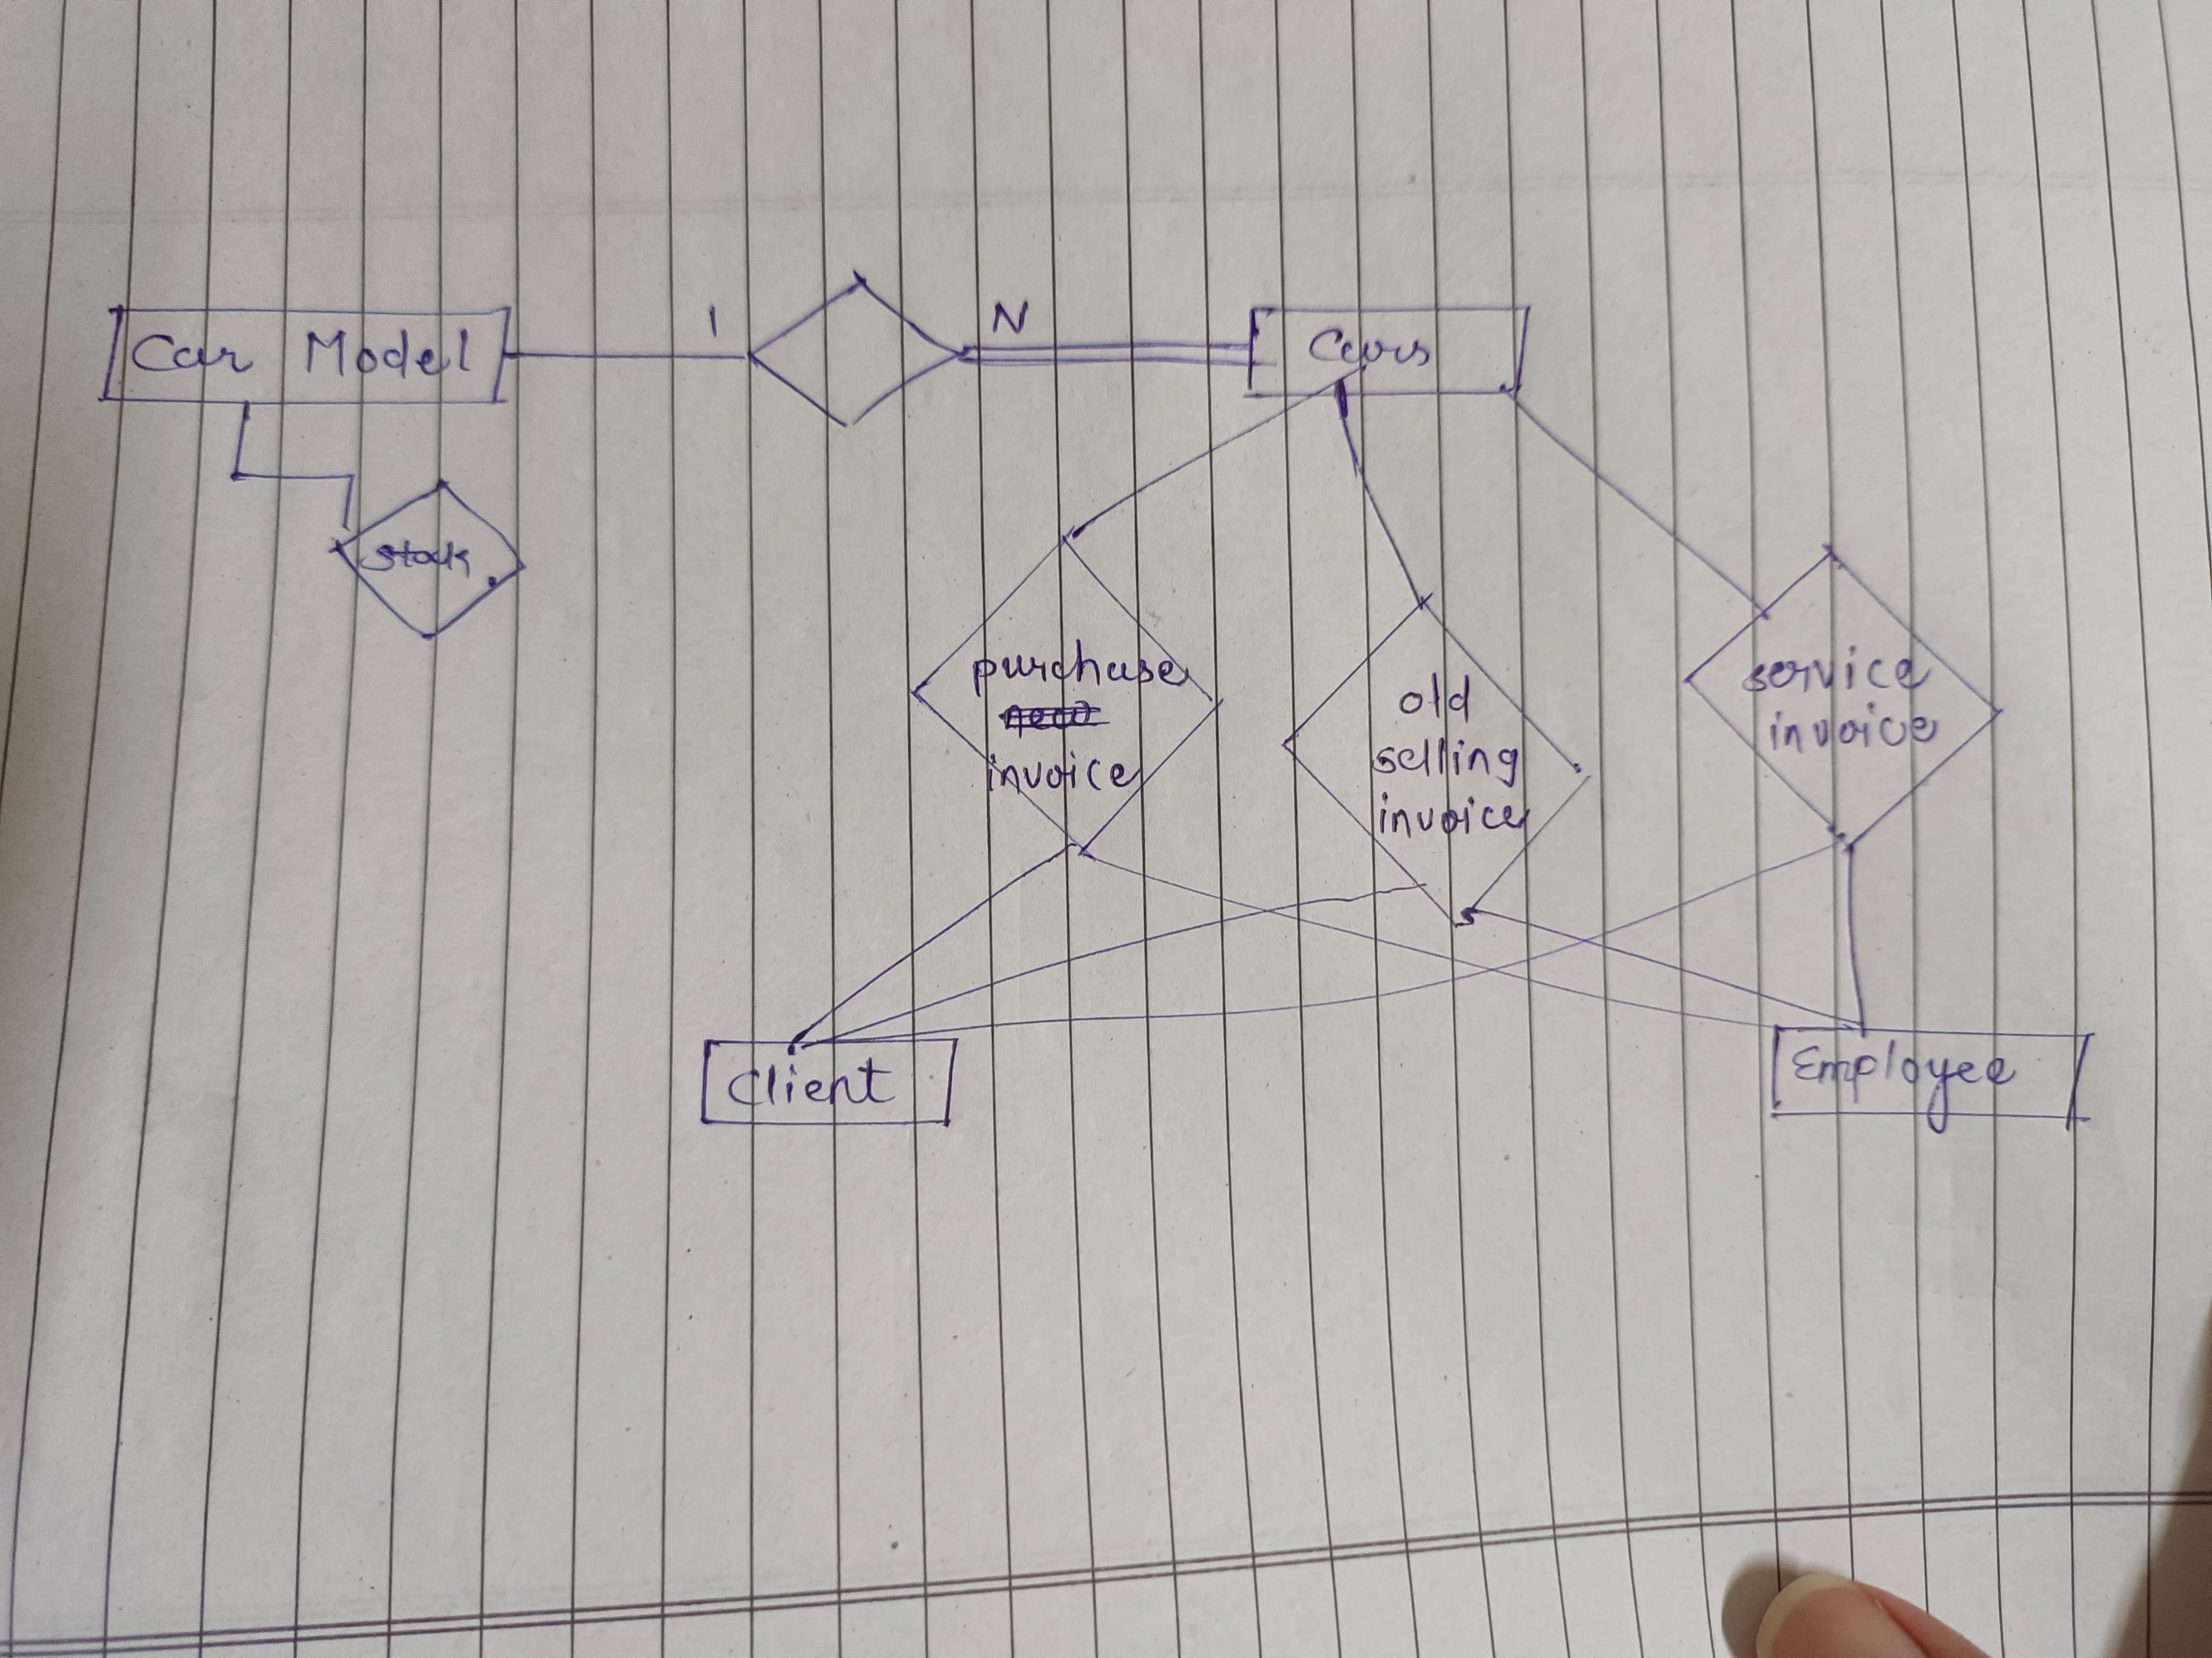 1 N
Car Model
Cars
stock
purchase
invoice
old
selling
invoice
service
invoice
Client
Employee